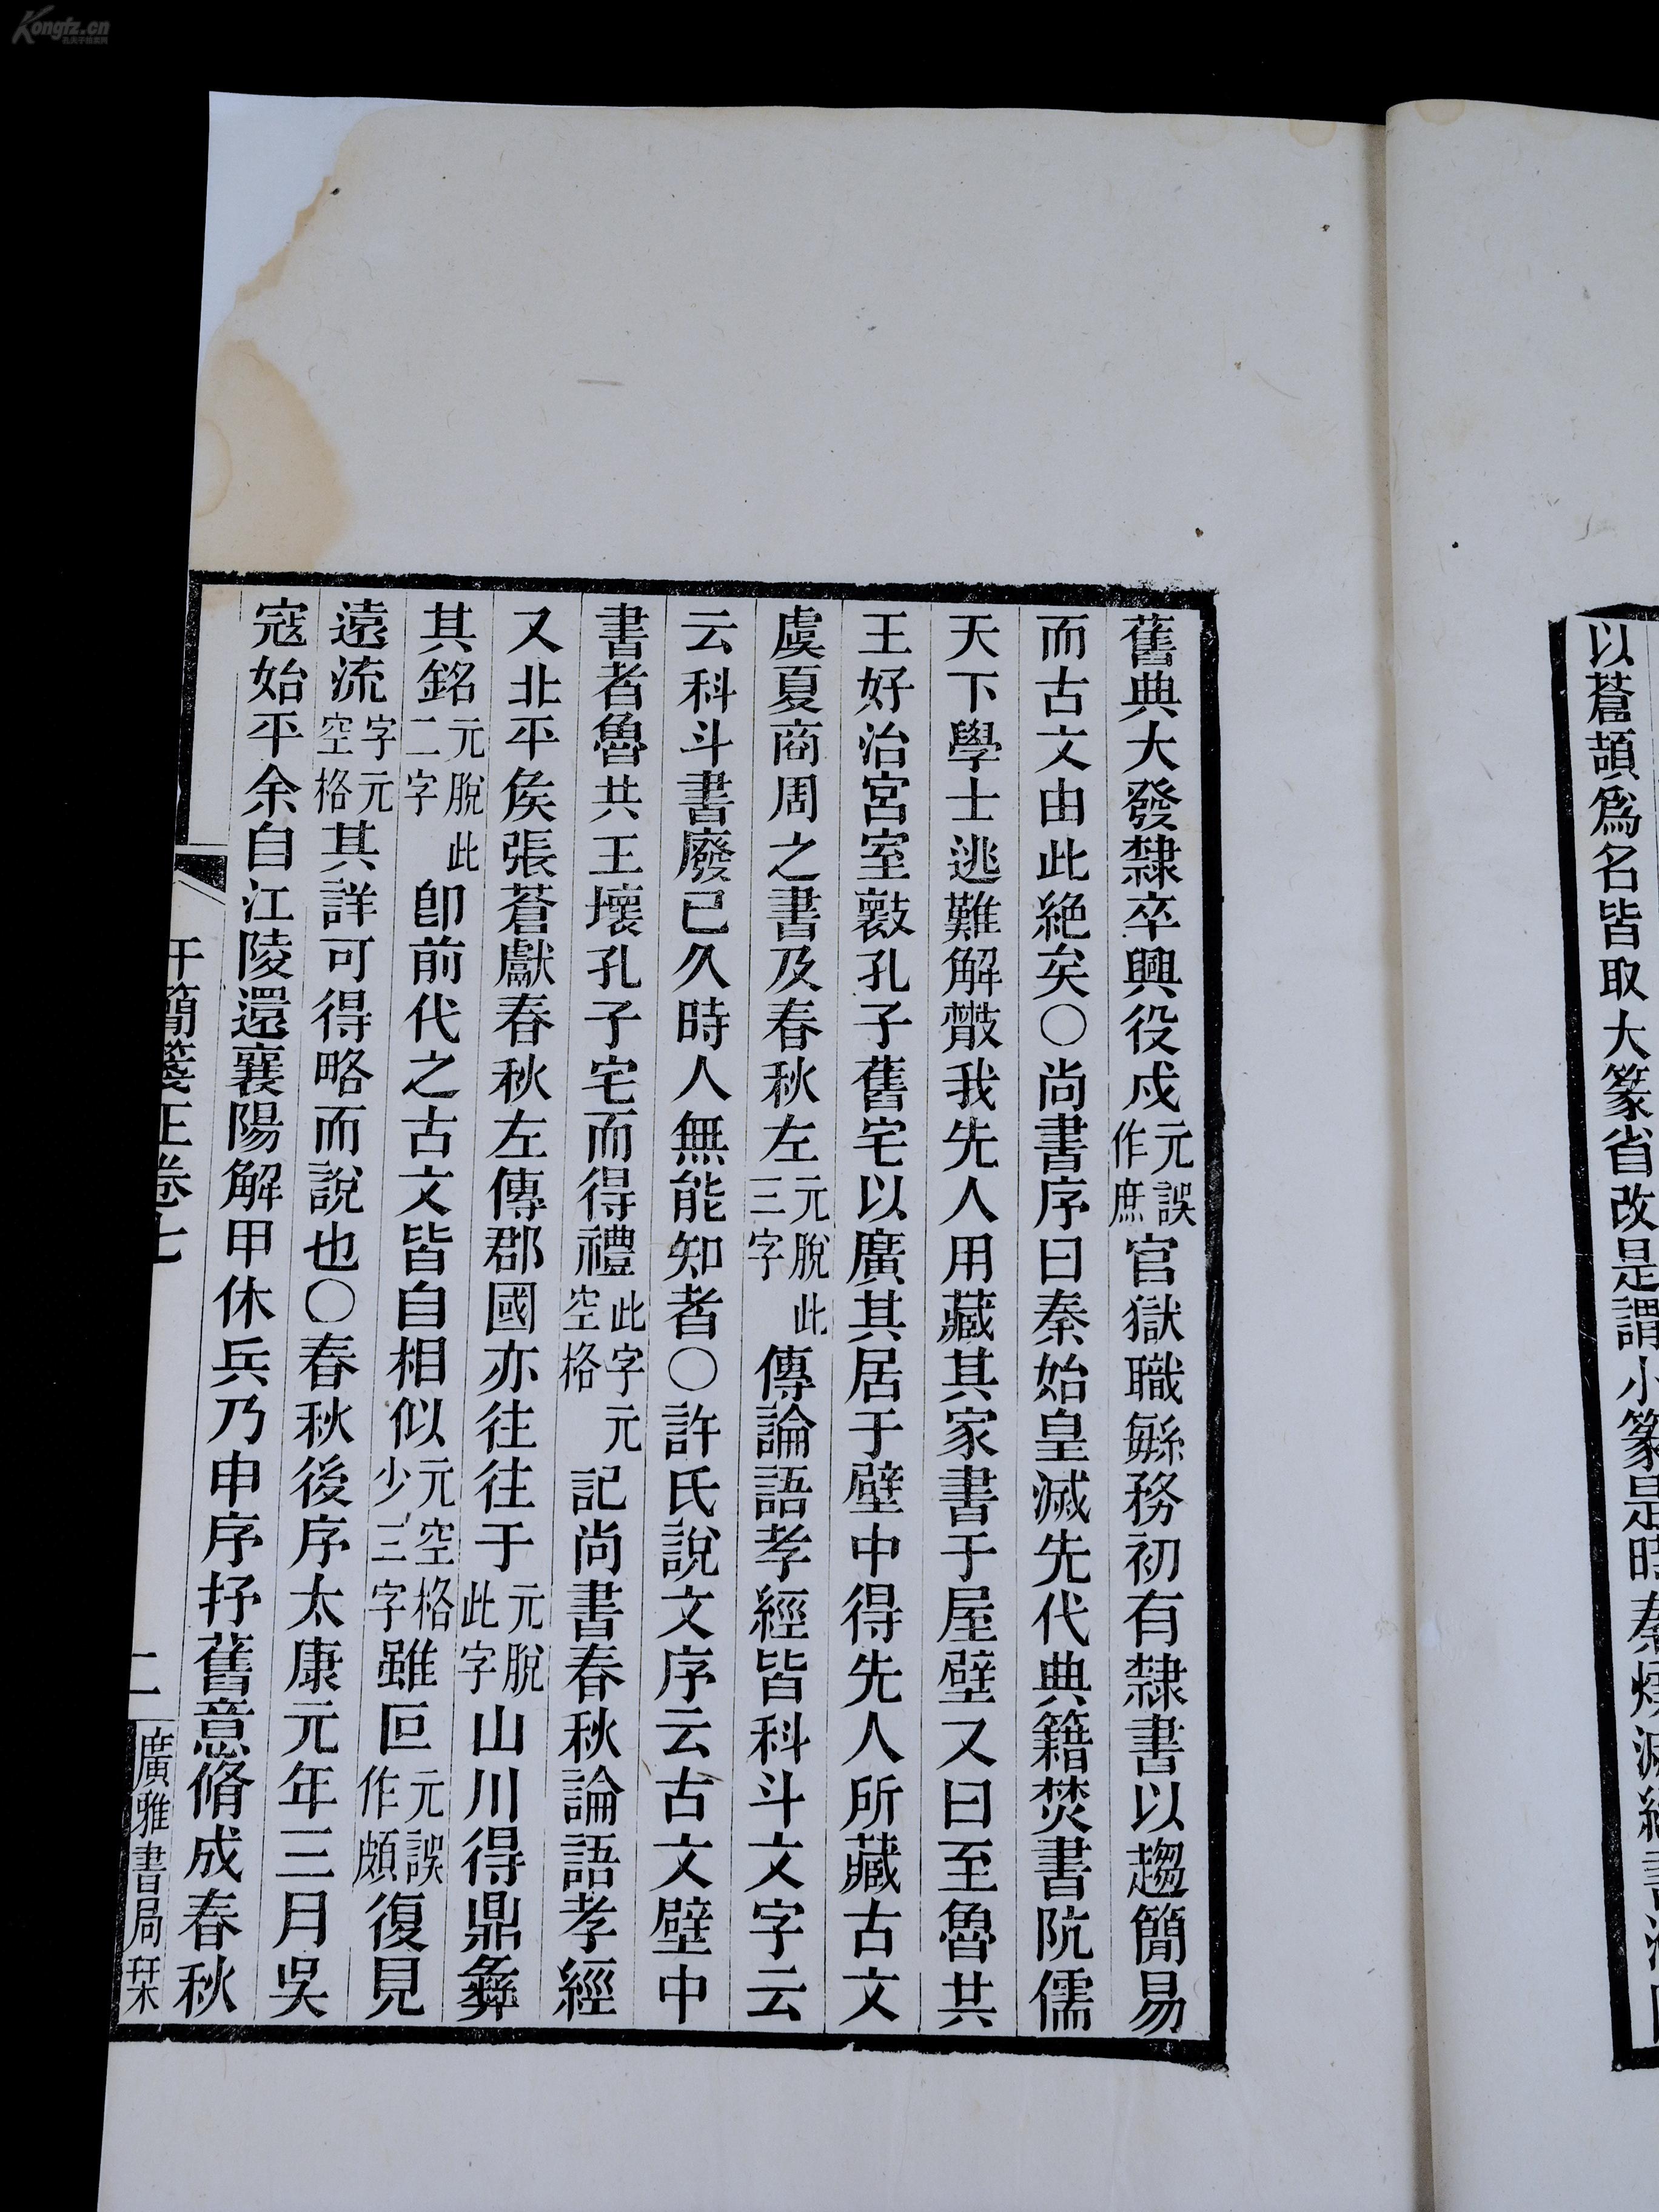 以蒼頡爲名皆取大篆省改是謂小篆是時秦燒滅經書滌
舊典大發隸卒興役戍元誤作庶官獄職緐務初有隸書以趨簡易
而古文由此絶矣○尚書序曰秦始皇滅先代典籍焚書阬儒
天下學士逃難解散我先人用藏其家書于屋壁又曰至魯共
王好治宮室壞孔子舊宅以廣其居于壁中得先人所藏古文
虞夏商周之書及春秋左元脫此三字傳論語孝經皆科斗文字云
云科斗書廢已久時人無能知者○許氏說文序云古文壁中
書者魯共王壞孔子宅而得禮此字元空格記尚書春秋論語孝經
又北平矦張蒼獻春秋左傳郡國亦往往于元脫此字山川得鼎彝
其銘元脫此二字卽前代之古文皆自相似元空格少三字雖叵元誤作頗復見
遠流字元空格其詳可得略而說也○春秋後序太康元年三月吳
寇始平余自江陵還襄陽解甲休兵乃申序抒舊意脩成春秋
汗簡箋正卷七
二
廣雅書局栞
Kongfz.cn